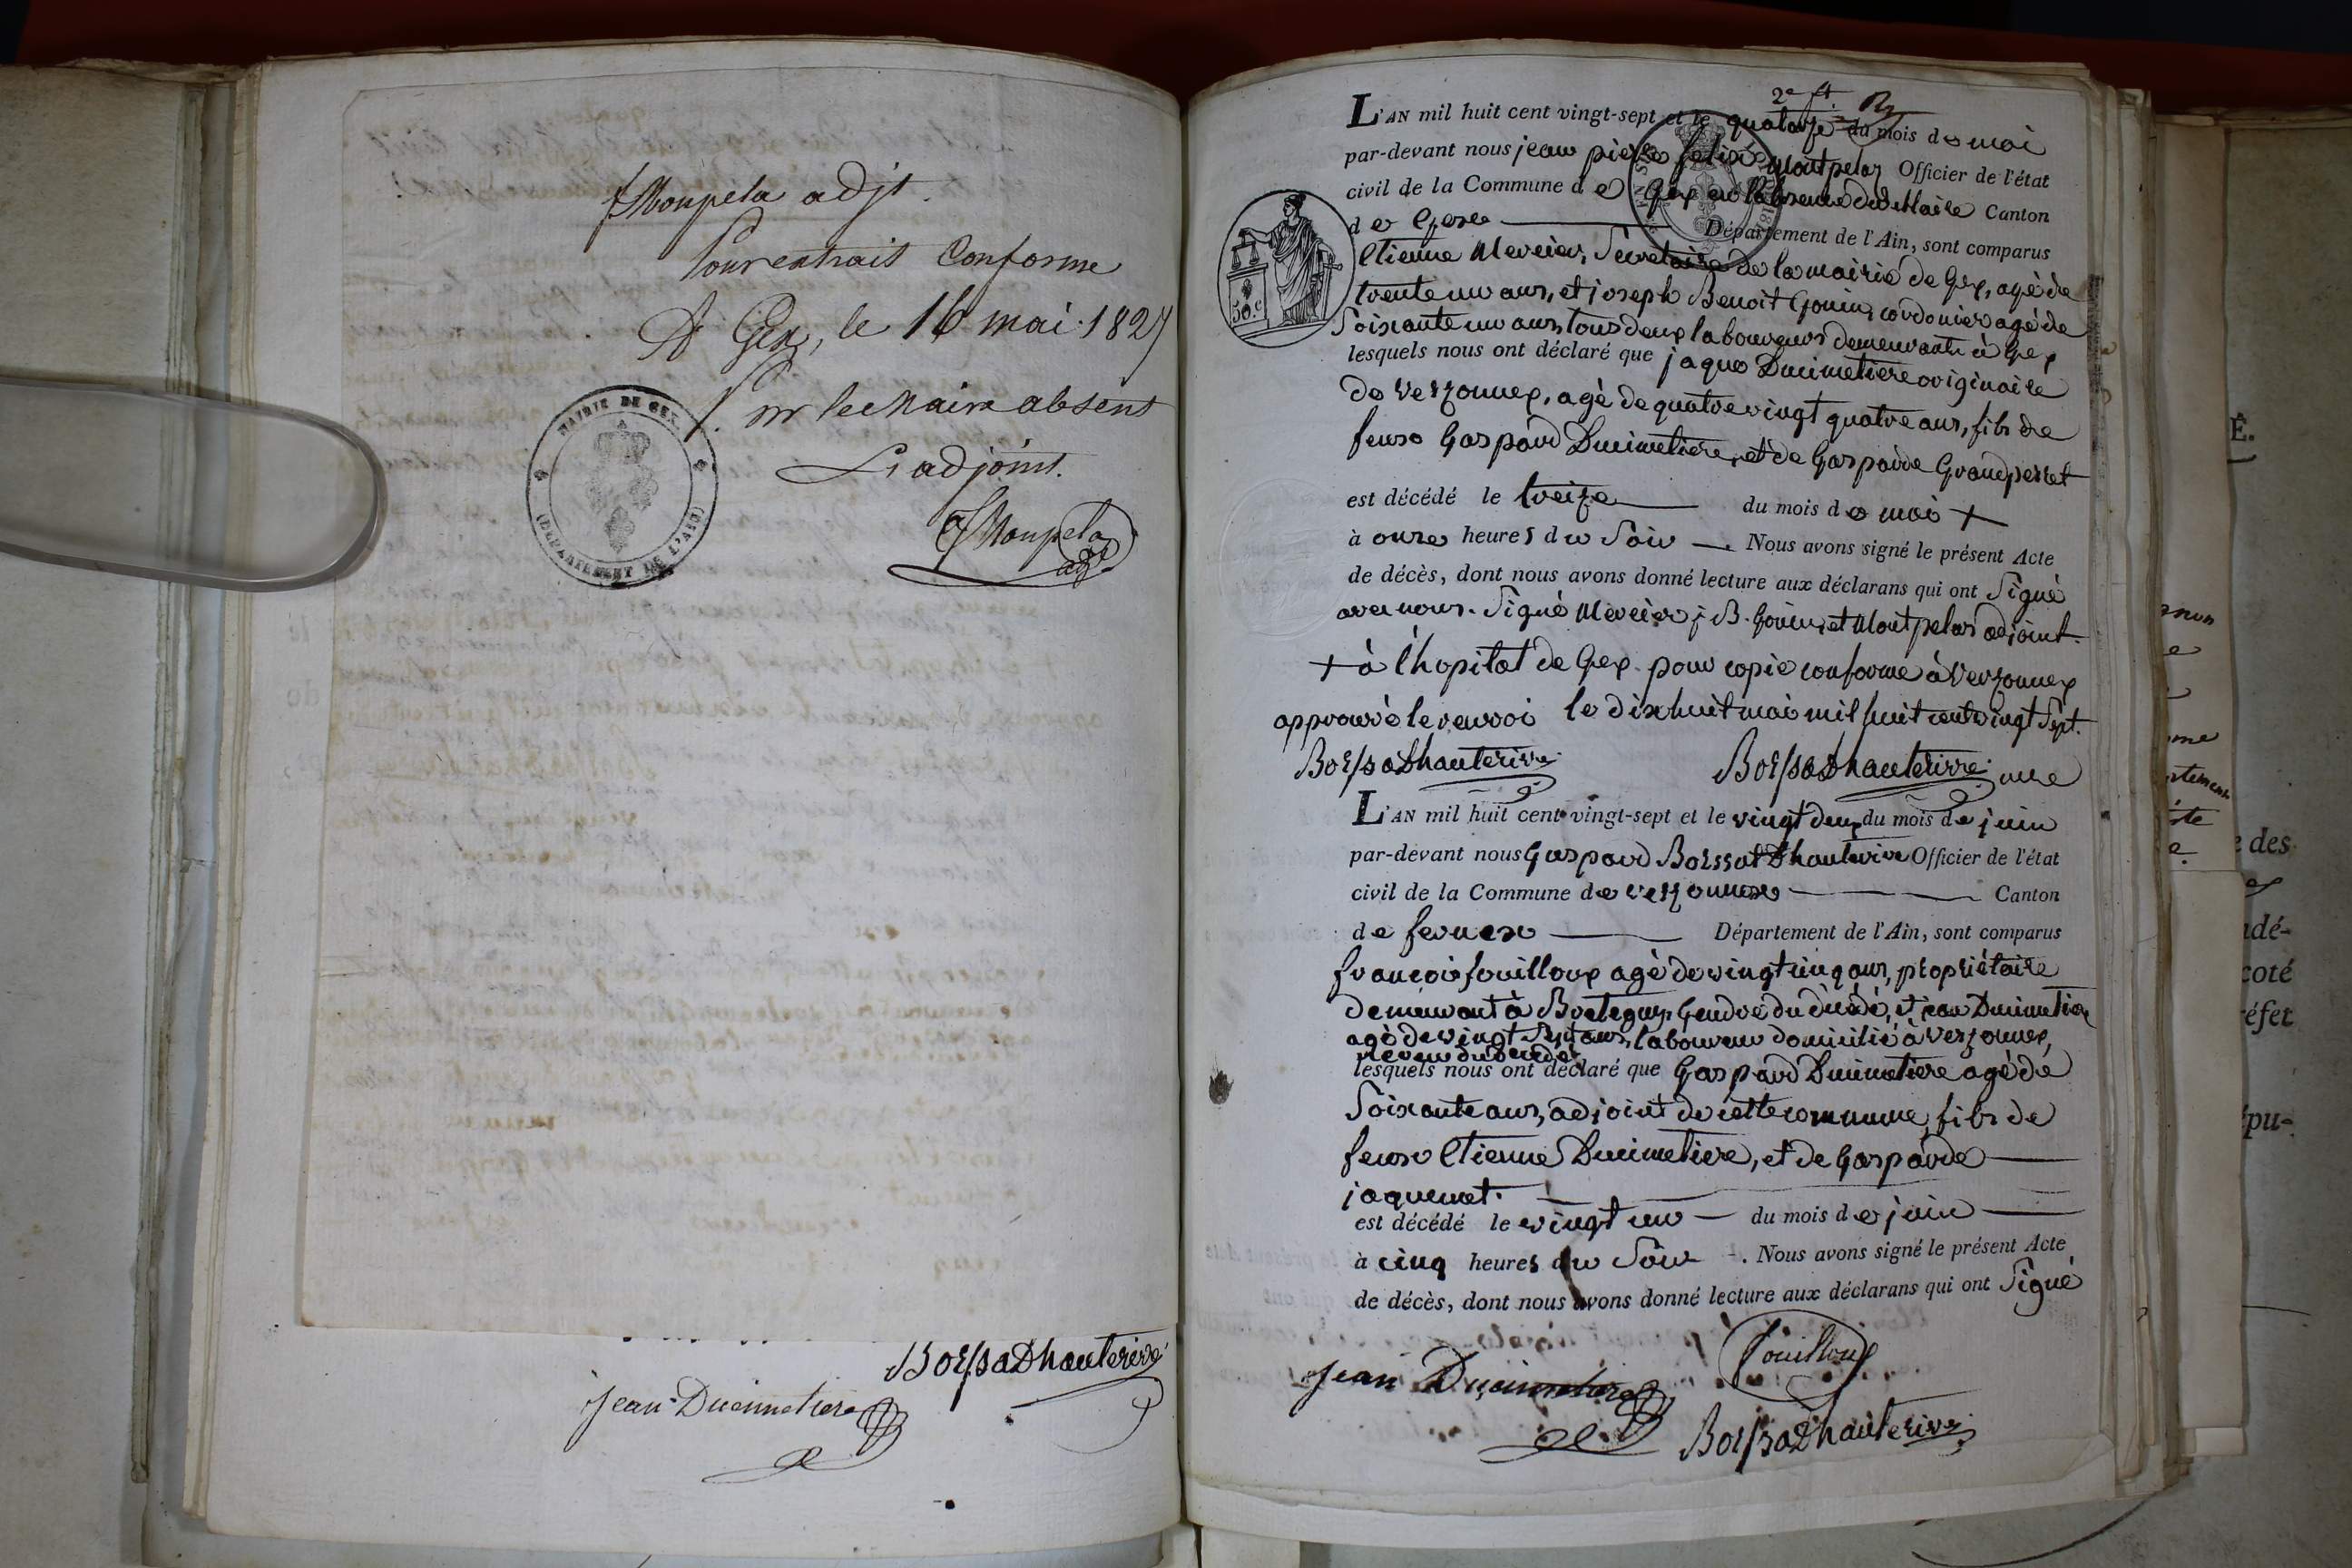 fMonpela adjt.
Pour extrait Conforme
A Gex, le 16 mai 1827
Pr le Maire absent
L'adjoint
fMonpela
adjt
MAIRIE DE GEX
(DÉPARTEMENT DE L'AIN)
BoissaDhauterive
Jean Ducimetiere
2e ft.
L'AN mil huit cent vingt-sept et le quatorze du mois de mai
par-devant nous jean pierre felix Montpelar Officier de l'état
civil de la Commune de Gex en l'absence du Maire Canton
de Gex Département de l'Ain, sont comparus
Etienne Mercier, Sécretaire de la mairie de Gex, agé de
trente un ans, et joseph Benoit Gouin, cordonier agé de
Soixante un ans, tous deux laboureurs demeurants à Gex
lesquels nous ont déclaré que jaque Ducimetiere originaire
de Verzonnex, agé de quatre vingt quatre ans, fils de
feux Gaspard Ducimetiere, et de Gasparde Grandperret
est décédé le treize du mois de mai +
à onze heures du Soir. Nous avons signé le présent Acte
de décès, dont nous avons donné lecture aux déclarans qui ont Signé
avec nous. Signé Mercier, j B. Gouin, et Montpelar adjoint.
+ à l'hopital de Gex pour copie conforme à Verzonnex
approuvé le renvoi le dix huit mai mil huit cent vingt Sept.
BoissaDhauterive BoissaDhauterive mre
50.C
L'AN mil huit cent vingt-sept et le vingt deux du mois de juin
par-devant nous Gaspard Boissat Dhauterive Officier de l'état
civil de la Commune de verzonnex Canton
de fernex Département de l'Ain, sont comparus
françois fouilloux agé de vingt cinq ans, propriétaire
demeurant à Bretegny, Gendre du décédé, et jean Ducimetiere
agé de vingt Sept ans, laboureur domicilié à Verzonnex,
neveu du decedé
lesquels nous ont déclaré que Gaspard Ducimetiere agé de
Soixante ans, adjoint de cette commune, fils de
feux Etienne Ducimetiere, et de Gasparde
jaquemet.
est décédé le vingt un du mois de juin
à cinq heures du Soir. Nous avons signé le présent Acte
de décès, dont nous avons donné lecture aux déclarans qui ont Signé
fouilloux
Jean Ducimetiere
BoissaDhauterive